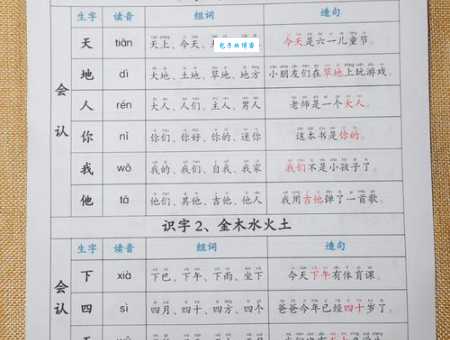 生字 读音 组词 造句
会认
天 tiān 天上、今天、 今天是六一儿童节。
地 dì 大地、土地、草地、地方 小朋友们在草地上玩游戏。
人 rén 大人、人们、主人、男人 老师是一个大人。
你 nǐ 你们、你好、你的、迷你 这本书是你的。
我 wǒ 我的、我们、自我、我家 我们不是小孩子了。
他 tā 他们、其他、吉他、他人 我用吉他弹了一首歌。
识字2、金木水火土
生字 读音 组词 造句
会认
下 xià 下巴、下午、下雨、坐下 今天下午有体育课。
四 sì 四月、四十、四个、四方 爸爸今年已经四十岁了。